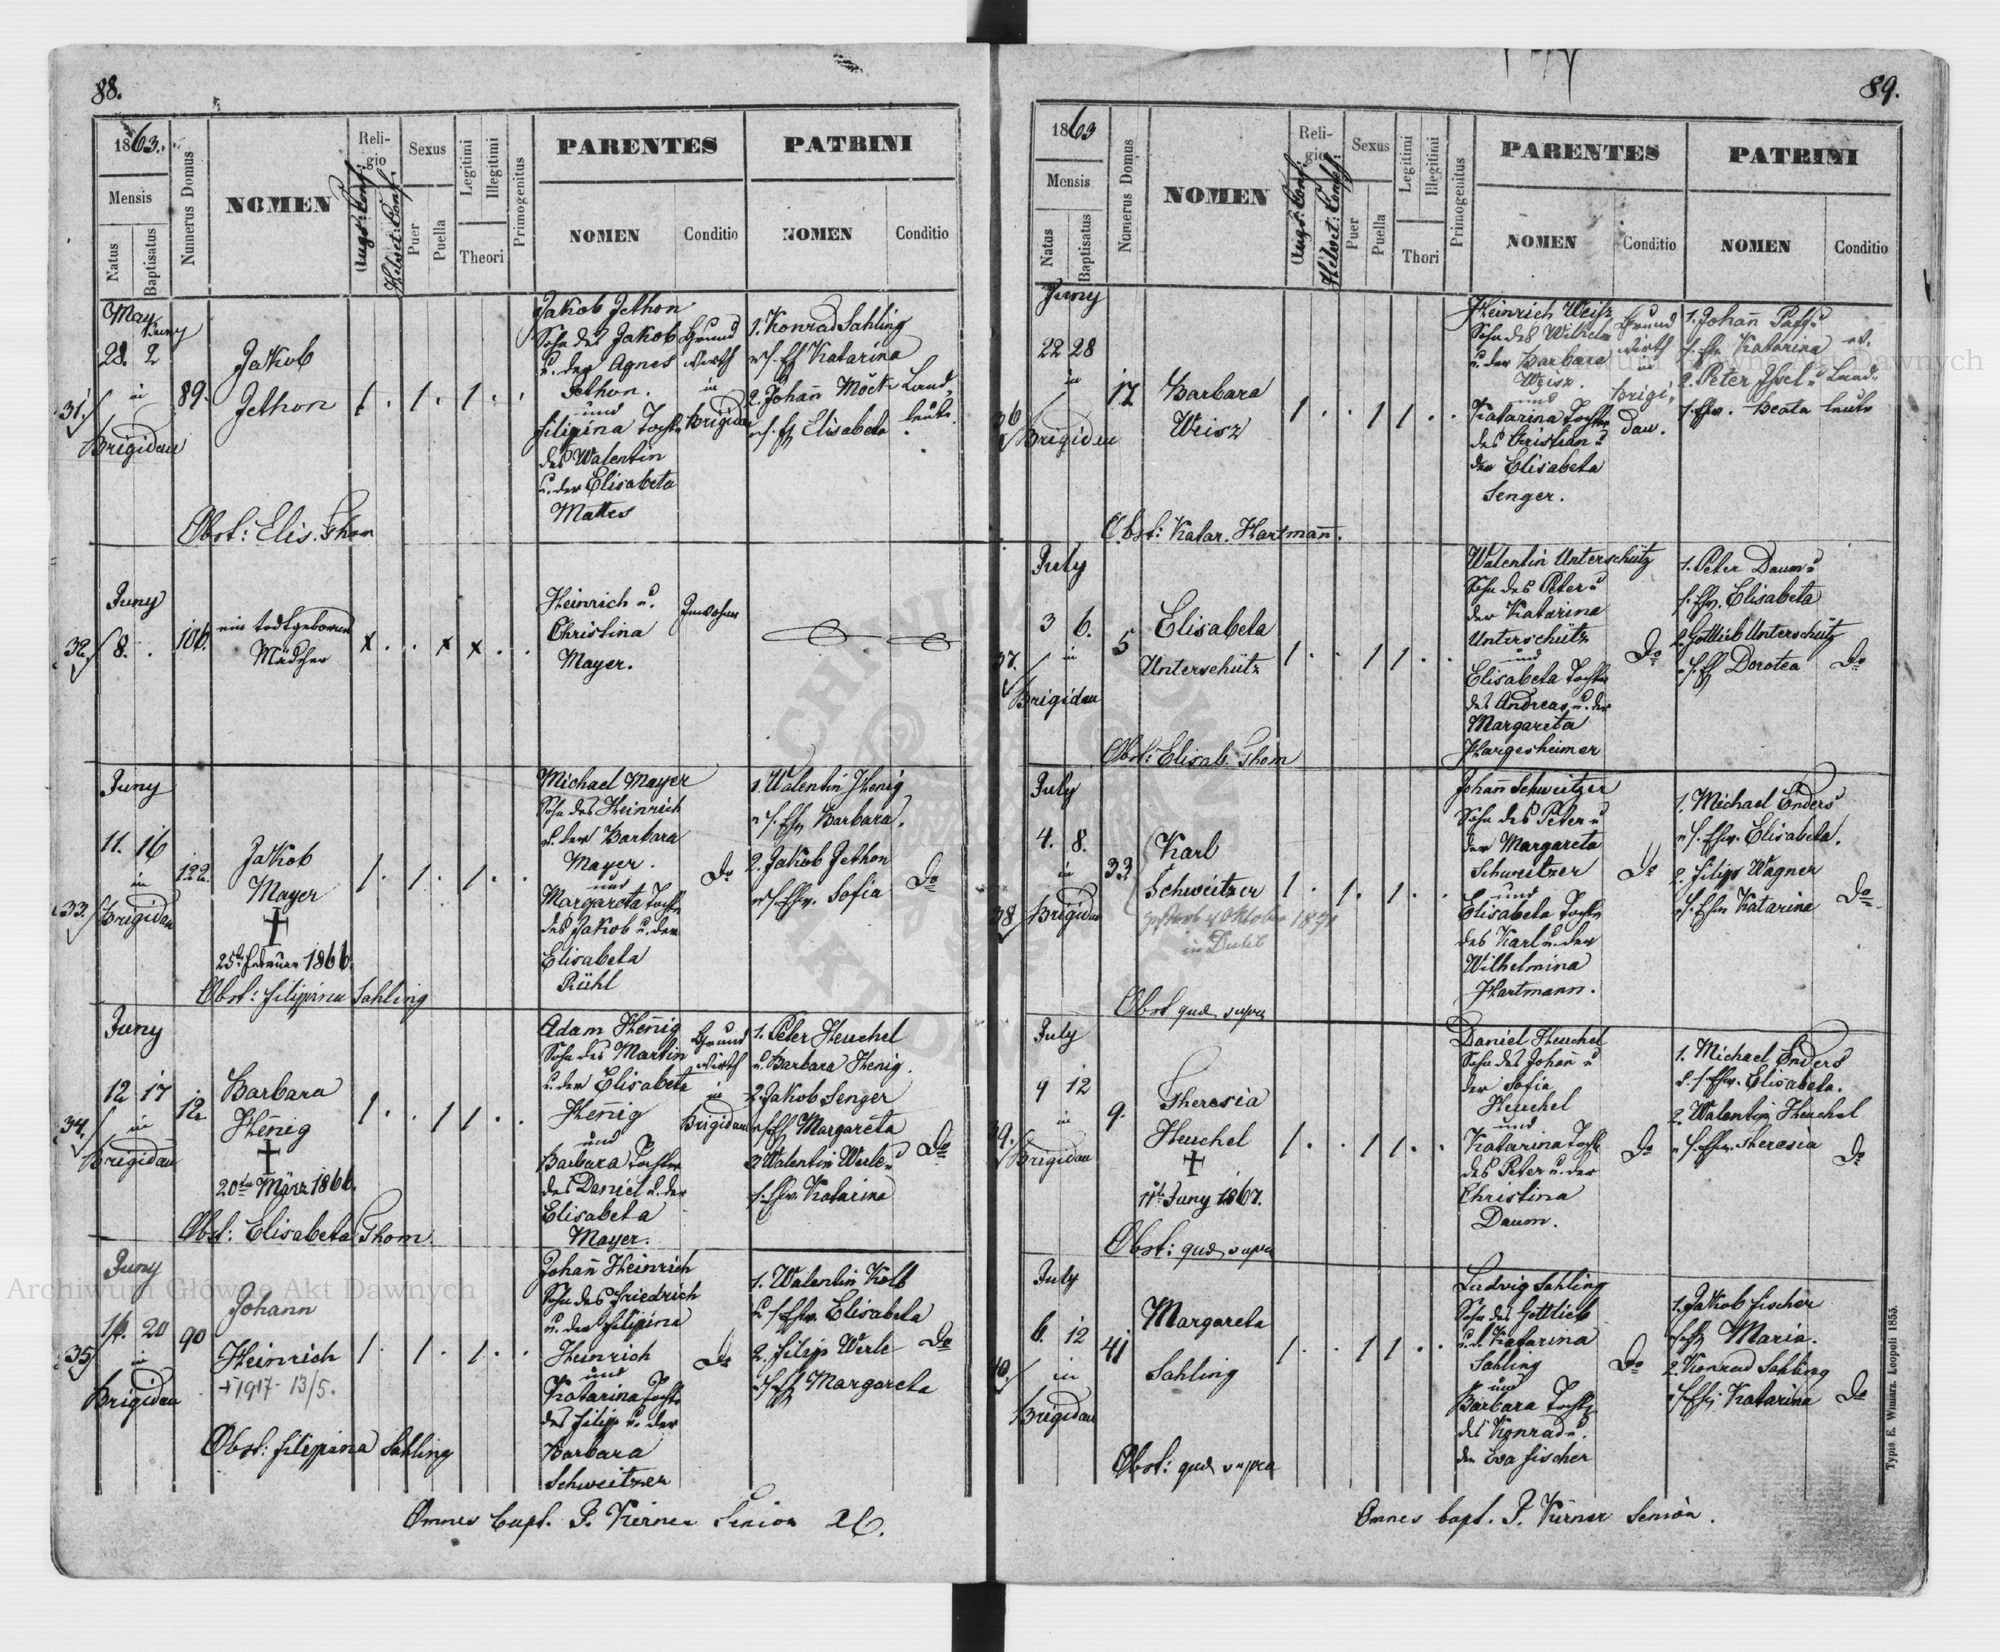 88.
1863.
Mensis
Natus
Baptisatus
Numerus Domus
NOMEN
Reli-
gio
Augs: Conf:
Helvet: Conf:
Sexus
Puer
Puella
Legitimi
Illegitimi
Theori
Primogenitus
PARENTES
NOMEN
Conditio
PATRINI
NOMEN
Conditio
31.
May
Juny
28. 2
in
Brigidau
89.
Jakob
Jethon
1. . 1. . 1. . .
Jakob Jethon
Sohn des Jakob
u. der Agnes
Jethon.
und
Filipina Tocht
des Walentin
u. der Elisabeta
Mattes
Grund
wirth
in
Brigidau
1. Konrad Sahling
Katarina
2. Johañ
Elisabeta
Land
leute.
Obst: Elis. Thom
32.
Juny
8. .
106.
ein todtgeborenes
Mädchen
x . . x x . .
Heinrich u.
Christina
Mayer.
Inwohner
33.
Juny
11. 16
in
Brigidau
122.
Jakob
Mayer
25t Februar 1866.
1. . 1. . 1. . .
Michael Mayer
Sohn des Heinrich
u. der Barbara
Mayer.
und
Margareta Tocht
des Jakob u. der
Elisabeta
Rühl
Do
1. Walentin Henig
Barbara.
2. Jakob Jethon
Sofia
Do
Obst: Filippina Sahling
34.
Juny
12 17
in
Brigidau
12
Barbara
Heñig
20ten März 1866.
1. . . 1 1. . .
Adam Heñig
Sohn des Martin
u. der Elisabeta
Heñig
und
Barbara Tochter
des Daniel u. der
Elisabeta
Mayer.
Grund
wirth
in
Brigidau
1. Peter Heuchel
u. Barbara Henig.
2. Jakob Senger
Margareta
3 Walentin Werle u
s. Ehw. Katarina
Do
Obst: Elisabeta Thom.
35
Juny
14. 20
in
Brigidau
90
Johann
Heinrich
+ 1917 - 13/5.
1. . 1. . 1. . .
Johañ Heinrich
Sohn des Friedrich
u. der Filipina
Heinrich
und
Katarina Tocht
des Filipp u. der
Barbara
Schweitzer
Do
1. Walentin Kolb
u. s. Ehw. Elisabeta
2. Filip Werle
Margareta
Do
Obst: Filippina Sahling
Omnes bapt. J. Kerner Senior
89.
1863
Mensis
Natus
Baptisatus
Numerus Domus
NOMEN
Reli-
gio
Augs: Conf:
Helvet: Conf:
Sexus
Puer
Puella
Legitimi
Illegitimi
Thori
Primogenitus
PARENTES
NOMEN
Conditio
PATRINI
NOMEN
Conditio
36
Juny
22 28
in
Brigidau
17
Barbara
Weisz
1. . . 1 1 . .
Heinrich Weisz
Sohn des Wilhelm
u. der Barbara
Weisz.
und
Katarina Tochter
des Cristian u
der Elisabeta
Senger.
Grund
wirth
in
Brigi,
dau.
1. Johañ
s. Ehw. Katarina
2. Peter
s. Ehw. Beata
Land
leute
Obst: Katar. Hartmañ.
37.
July
3 6.
in
Brigidau
5
Elisabeta
Unterschütz
1. . . 1 1 . .
Walentin Unterschütz
Sohn des Peter u
der Katarina
Unterschütz
und
Elisabeta Tochter
des Andreas u. der
Margareta
Hargesheimer
Do
1. Peter Daum u
s. Ehw. Elisabeta
2. Gottlieb Unterschütz
Dorotea
Do
Obst: Elisab. Thom
38
July
4. 8.
in
Brigidau
33
Karl
Schweitzer
1 . 1. . 1. . .
Johañ Schweitzer
Sohn des Peter u
der Margareta
Schweitzer
und
Elisabeta Tocht
des Karl u. der
Wilhelmina
Hartmann.
Do
1. Michael Enders
u s. Ehw. Elisabeta.
2. Filipp Wagner
Katarina
Do
Obst quæ supra
39.
July
9 12
in
Brigidau
9.
Theresia
Heuchel
11t Juny 1867.
1. . . 1 1. . .
Daniel Heuchel
Sohn des Johañ u
der Sofia
Heuchel
und
Katarina Tocht
des Peter u. der
Christina
Daum.
Do
1. Michael Enders
u. s. Ehw. Elisabeta.
2. Walentin Heuchel
u. s. Ehw. Theresia
Do
Obst: quæ supra
40.
July
6. 12
in
Brigidau
41
Margareta
Sahling
1. . . 1 1 . .
Ludwig Sahling
Sohn des Gottlieb
u. d. Katarina
Sahling
und
Barbara Tocht
des Konrad u.
der Eva Fischer
Do
1. Jakob Fischer
Maria.
2. Konrad Sahling
Katarina
Do
Obst: quæ supra
Omnes bapt. J. Kerner Senior.
Typis E. Winiarz. Leopoli 1855.
Archiwum Główne Akt Dawnych
Archiwum Główne Akt Dawnych